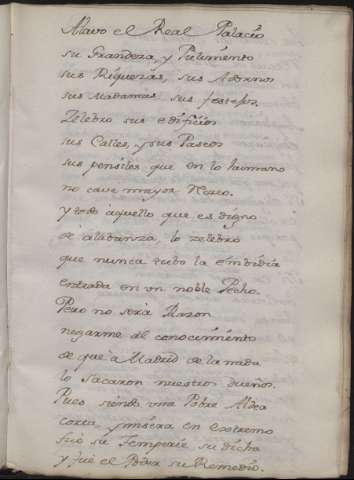 Alavo el Real Palacio
su Grandeza, y Pulimento
sus Riquezas, sus Adornos
sus Madamas sus festejos.
Zelebro sus edificios
sus Calles, y sus Paseos
sus pensiles que en lo humano
no cave mayor
y todo aquello que es digno
de alabanza, lo zelebro
que nunca tubo la embidia
entrada en un noble Pecho.
Pero no sera Razon
negarme al conocimiento
de que a Madrid de la nada
lo sacaron nuestros dueños.
Pues siendo una Pobre Aldea
corta, y misera en extremo
fue su Temperie su dicha
y fue el Poder su Remedio.